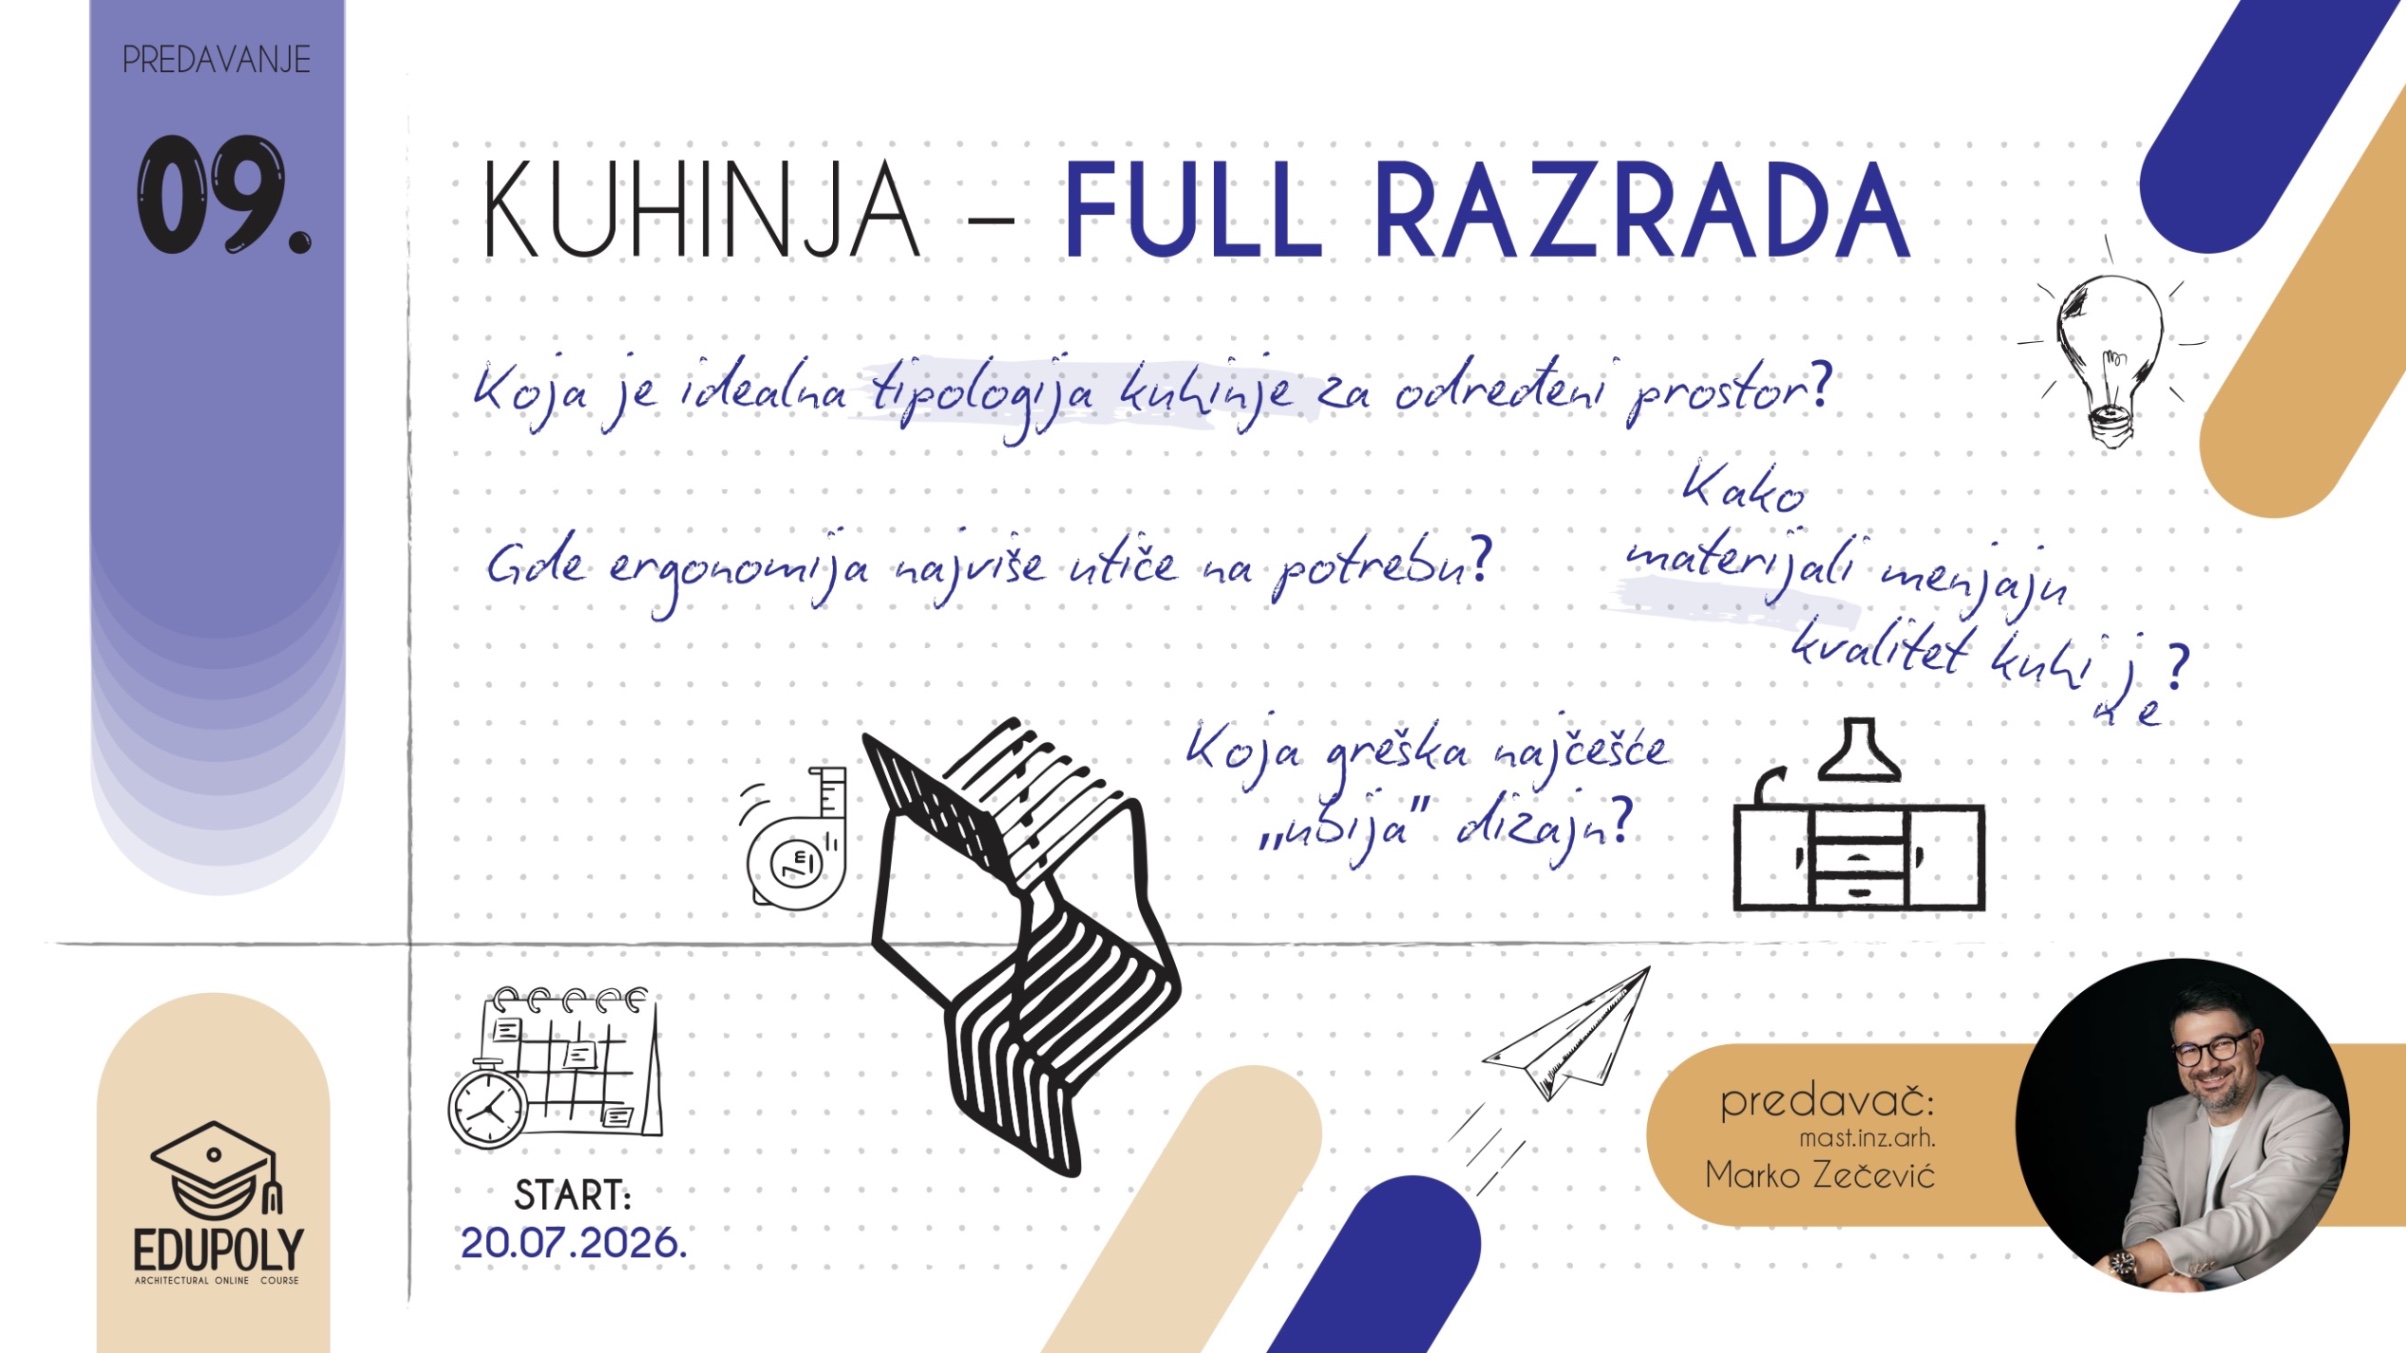 PREDAVANJE
09.
KUHINJA – FULL RAZRADA
Koja je idealna tipologija kuhinje za određeni prostor?
Gde ergonomija najviše utiče na potrebu?
Kako
materijali menjaju
kvalitet kuhinje?
Koja greška najčešće
„ubija" dizajn?
7m
START:
20.07.2026.
predavač:
mast.inz.arh.
Marko Zečević
EDUPOLY
ARCHITECTURAL ONLINE COURSE